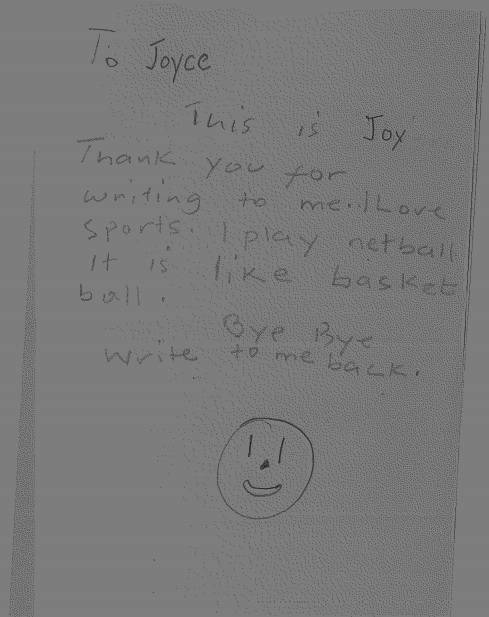 To Joyce
This is Joy
Thank you for
writing to me. I Love
sports. I play netball
It is like basket
ball.
Bye Bye
write to me back.